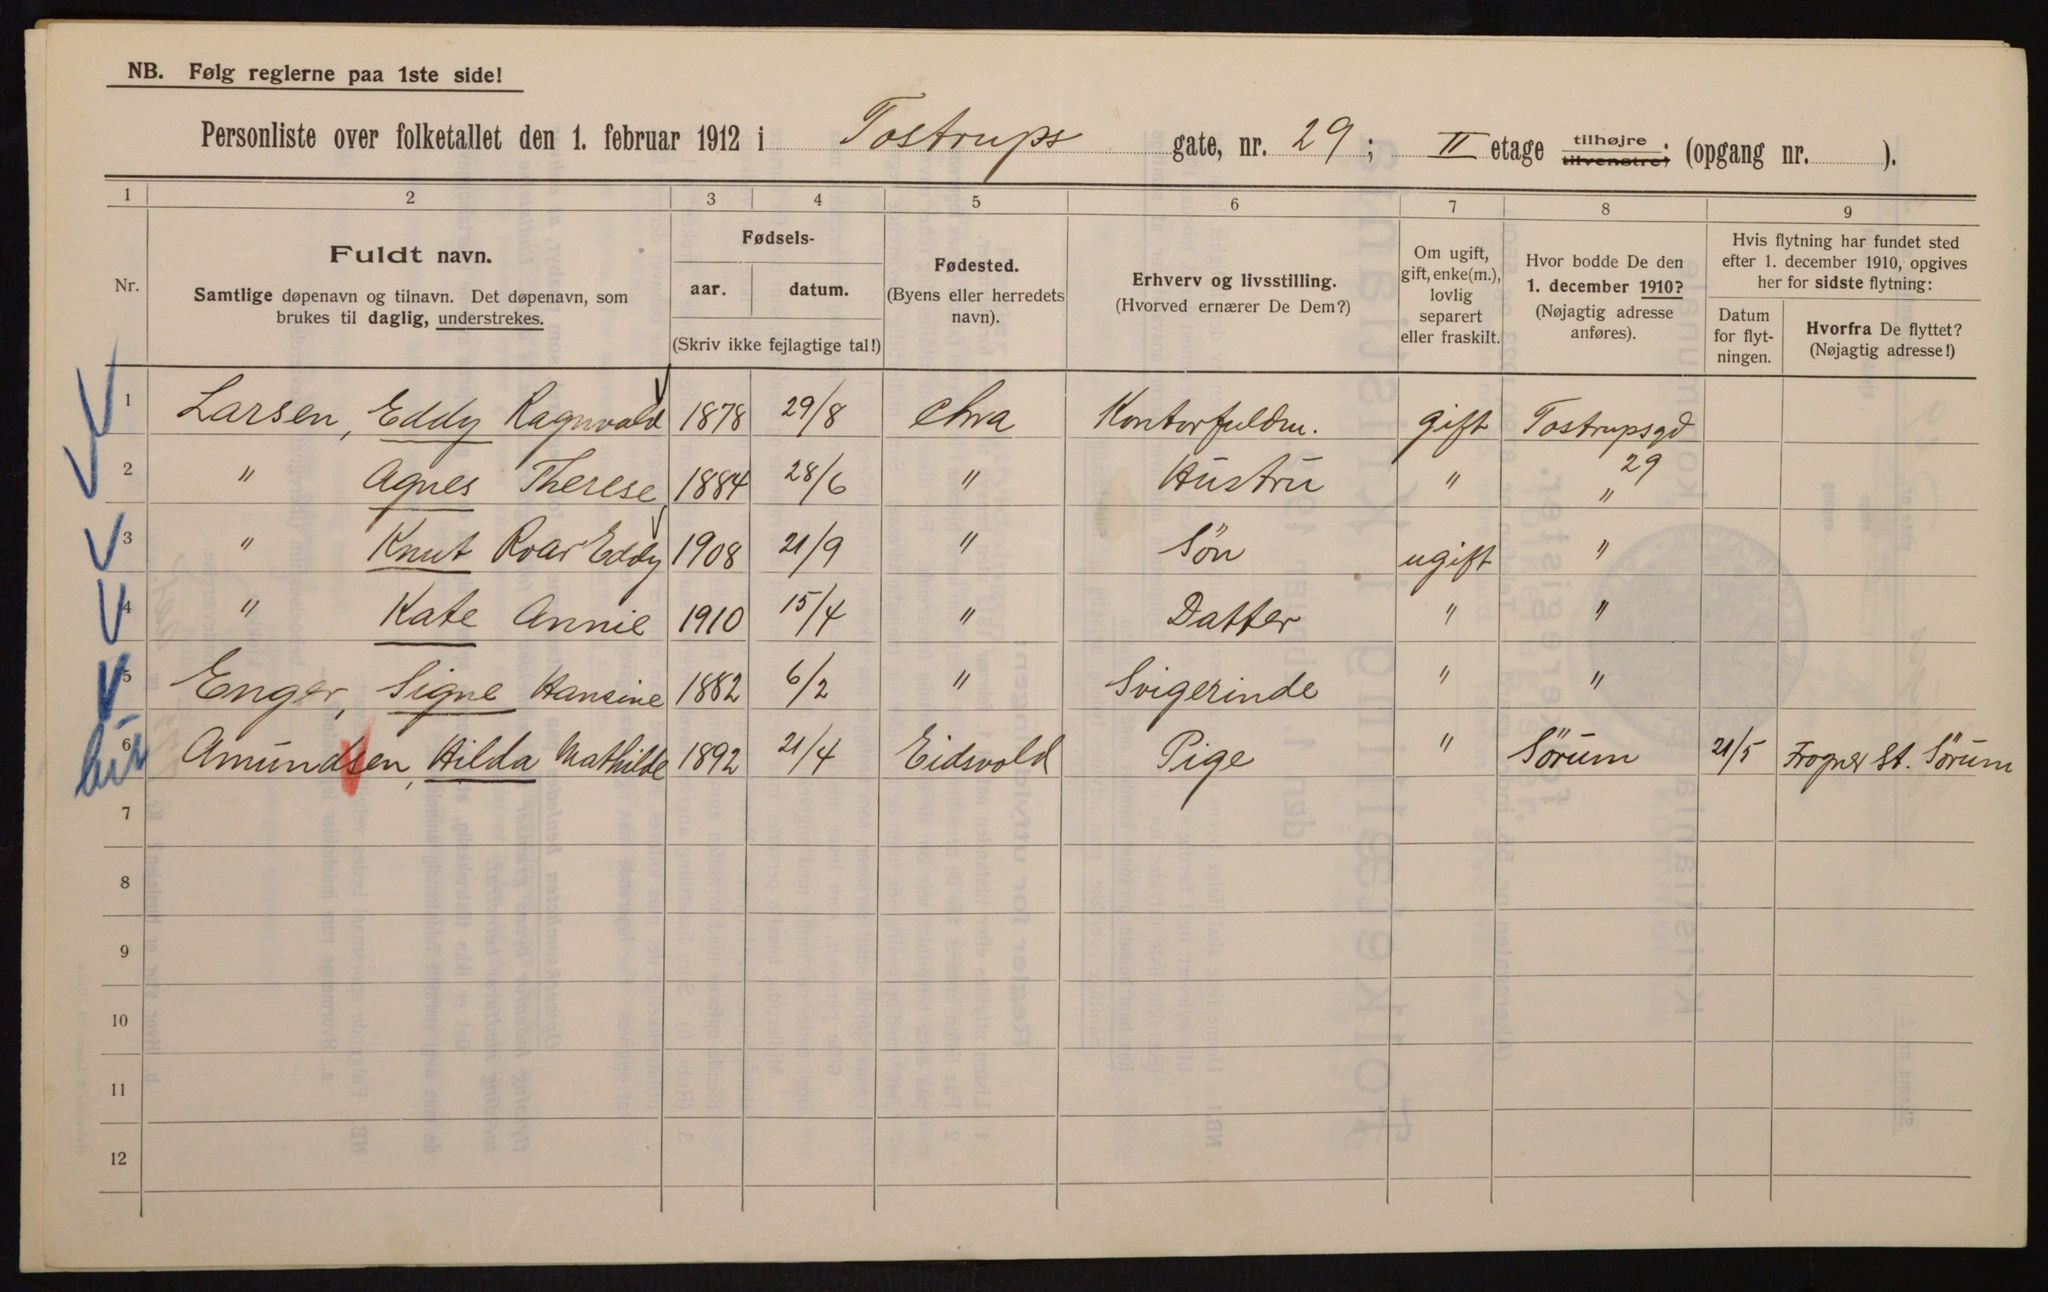 NB. Følg reglerne paa 1ste side!
Personliste over folketallet den 1. februar 1912 i Tostrups gate, nr. 29; II etage tilhøjre. tilvenstre, (opgang nr. ).
1 2 3 4 5 6 7 8 9
Nr.
Fuldt navn.
Samtlige døpenavn og tilnavn. Det døpenavn, som
brukes til daglig, understrekes.
Fødsels-
aar. datum.
(Skriv ikke fejlagtige tal!)
Fødested.
(Byens eller herredets
navn).
Erhverv og livsstilling.
(Hvorved ernærer De Dem?)
Om ugift,
gift, enke(m.),
lovlig
separert
eller fraskilt.
Hvor bodde De den
1. december 1910?
(Nøjagtig adresse
anføres).
Hvis flytning har fundet sted
efter 1. december 1910, opgives
her for sidste flytning:
Datum
for flyt-
ningen.
Hvorfra De flyttet?
(Nøjagtig adresse!)
1 Larsen, Eddy Ragnvald 1878 29/8 Chra Kontorfuldm. gift Tostrupsgd
29
2 " Agnes Therese 1884 28/6 " Hustru " "
3 " Knut Roar Eddy 1908 21/9 " Søn ugift "
4 " Kate Annie 1910 15/4 " Datter " "
5 Enger, Signe Hansine 1882 6/2 " Svigerinde " "
6 Amundsen, Hilda Mathilde 1892 21/4 Eidsvold Pige " Sørum 21/5 Frogner St. Sørum
7
8
9
10
11
12